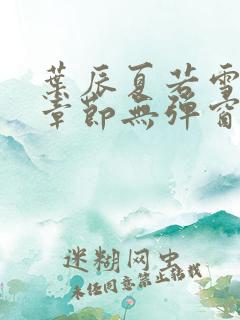 葉辰夏若雪
章節無彈窗
迷糊网虫
未经同意禁止转载